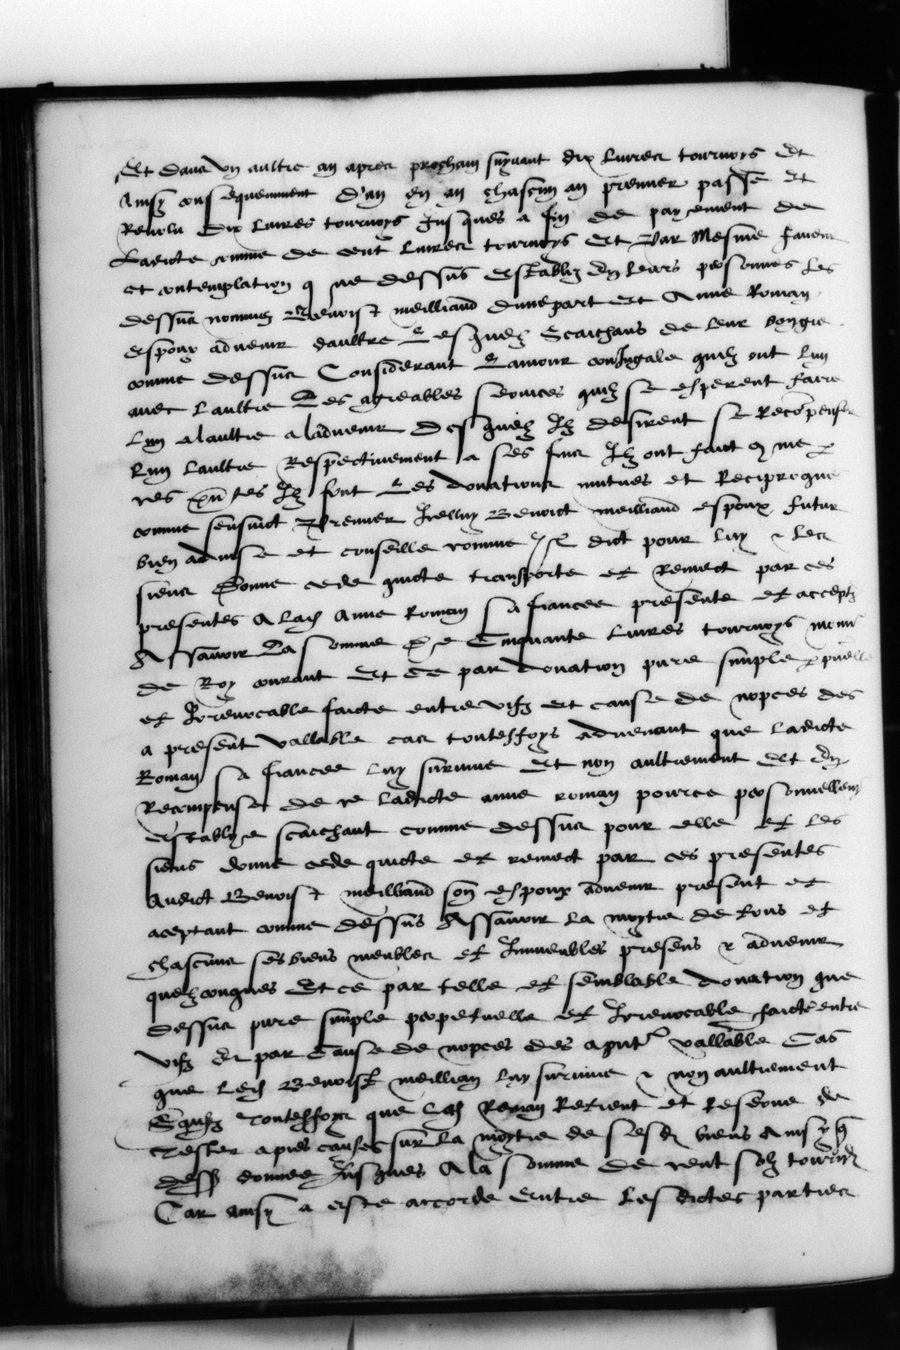 Et dans vn aultre an apres prochain suyuant dix liures tournoys Et
Ainsy consequemment d'an en an chascun an premier passe Et
Reuolu dix liures tournoys Jusques a fin de payement de
Ladicte somme de cent liures tournoys Et par mesme faueur
et contemplation q ue dessus establiz En leurs personnes les
dessus nommez Benoist meilliand dunepart Et Anne Roman
espoux aduenir daultre Lesquelz Scaichans de leur bongre
comme dessus Considerant Lamour coniugale quilz ont Lun
auec Laultre Les agreables seruices quilz se esperent faire
Lun alaultre aladuenir Desquelz Ilz desirent se Recompenser
Lun Laultre Respectiuement a ses fins Ilz ont faict et
ces pntes Ilz font Les donations mutues et Reciproque
comme sensuict Premier Icelluy Benoict meilliand espoux futur
bien aduise et conseille comme dict pour luy et les
siens Donne cede quicte transporte et Remect par ces
presentes A lad Anne Roman sa fiancee presente et accept
Assauoir La somme de Cinquante liures tournoys
de Roy courant Et Ce par donation pure simple
et Irreuocable faicte entre vifz et cause de nopces des
a present vallable cas toutesfoys aduenant que Ladicte
Roman sa fiancee luy suruiue Et non aultrement Et En
Recompense de ce ladicte anne roman pource personnellement
establye scaichant comme dessus pour elle et les
siens donne cede quicte et remect par ces presentes
Audict Benoist meilliand son espoux aduenir present et
aceptant comme dessus Assauoir la moytie de tous et
chascuns ses biens meubles et Immeubles presens et aduenir
quelzconques Et ce par telle et semblable donation que
dessus pure simple perpetuelle et Irreuocable faicte entre
vifz Et par Cause de nopces des apnt vallable Cas
que led Benoist meillian luy suruiue et non aultrement
toutesfoys que lad Roman Retient et Reserue de
tester apres causes sur la moytie de sesd biens Ainsy q
dess donnee Jusques A la somme de cent solz tourn
Car ainsy a este accorde Entre Lesdictes parties